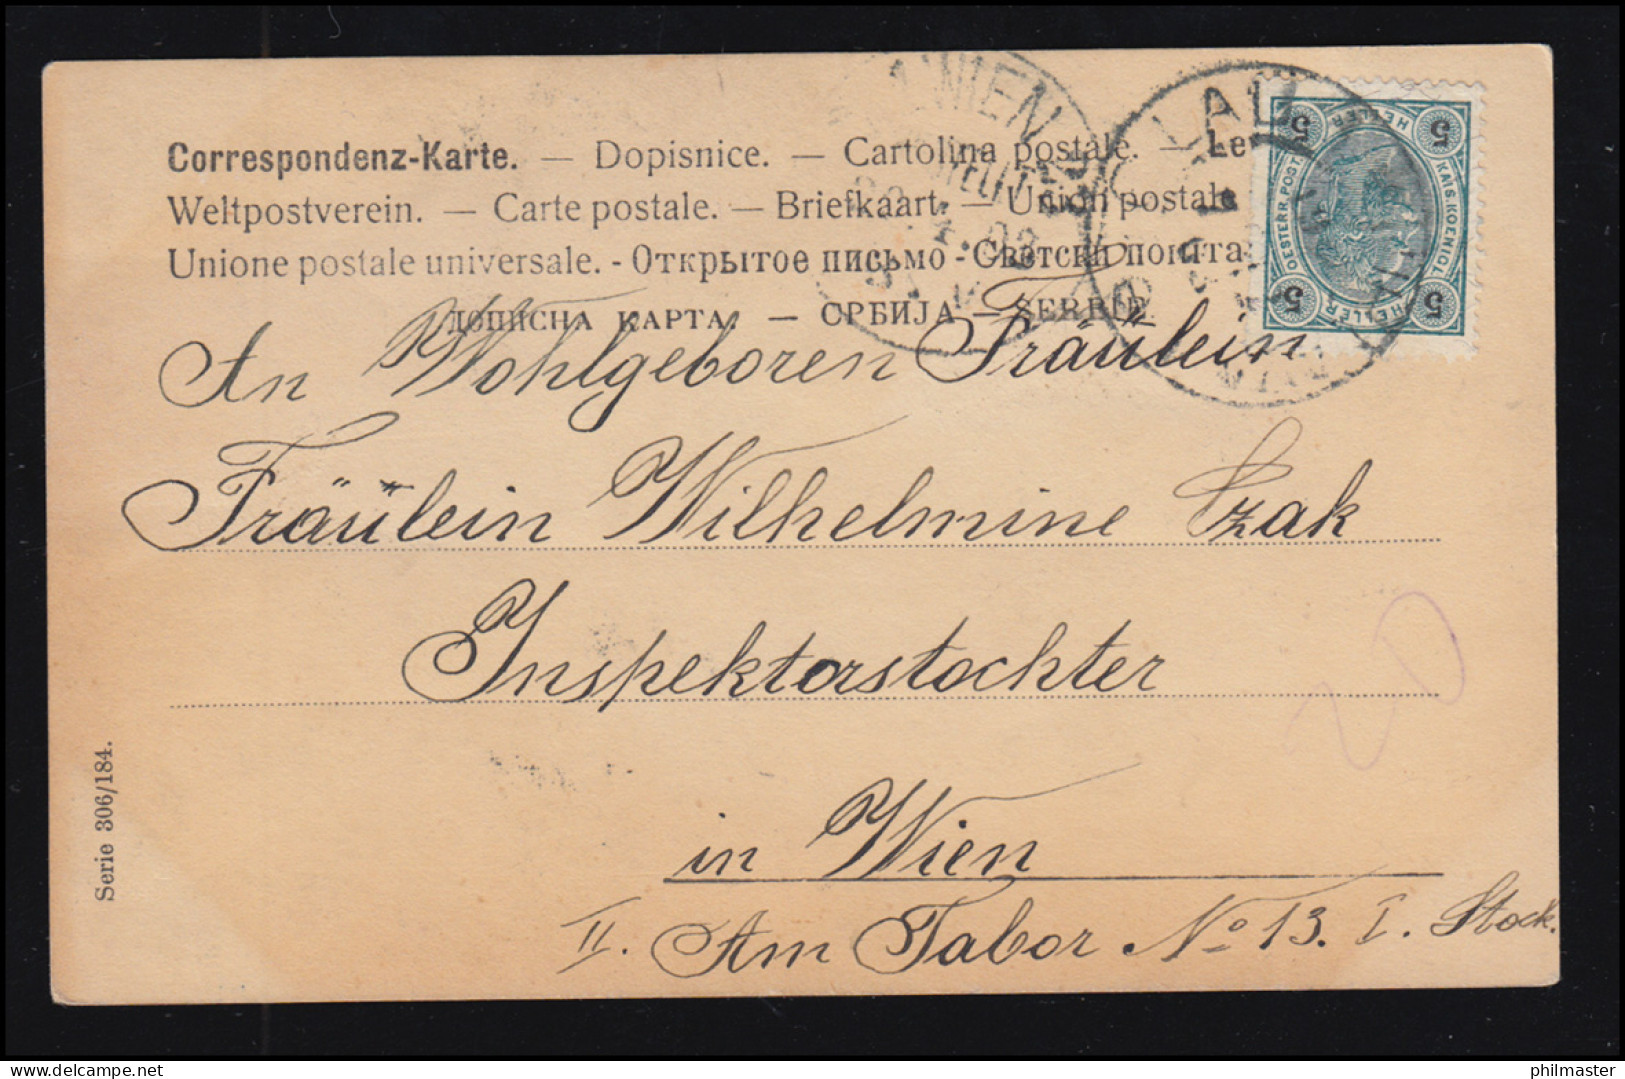 Correspondenz-Karte. — Dopisnice. — Cartolina postale. — Le
Weltpostverein. — Carte postale. — Briefkaart. — Union postale
Unione postale universale. - Открытое письмо - Светски пошта
ДОПИСНА КАРТА. — СРБИЈА — SERBIE
WIEN
LAU
5 HELLER 5
KAIS. KOENIGL.
OESTERR. POST
5 HELLER 5
An Wohlgeboren Fräulein
Fräulein Wilhelmine Czak
Inspektorstochter
in Wien
II. Am Tabor No 13. I. Stock.
20
Serie 306/184.
philmaster